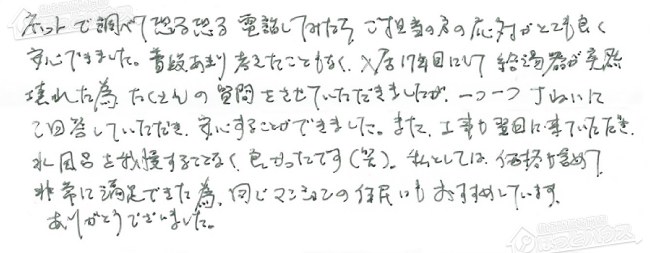 ネットで調べて恐る恐る電話してみたら、ご担当の方の応対がとても良く
安心できました。普段あまり考えたこともなく、入居17年目にして給湯器が突然
壊れた為、たくさんの質問をさせていただきましたが、一つ一つていねいに
ご回答していただき、安心することができました。また、工事も翌日に来ていただき、
お風呂を我慢することなく、良かったです(笑)。私としては、価格も含めて
非常に満足できた為、同じマンションの住民にもおすすめしています。
ありがとうございました。